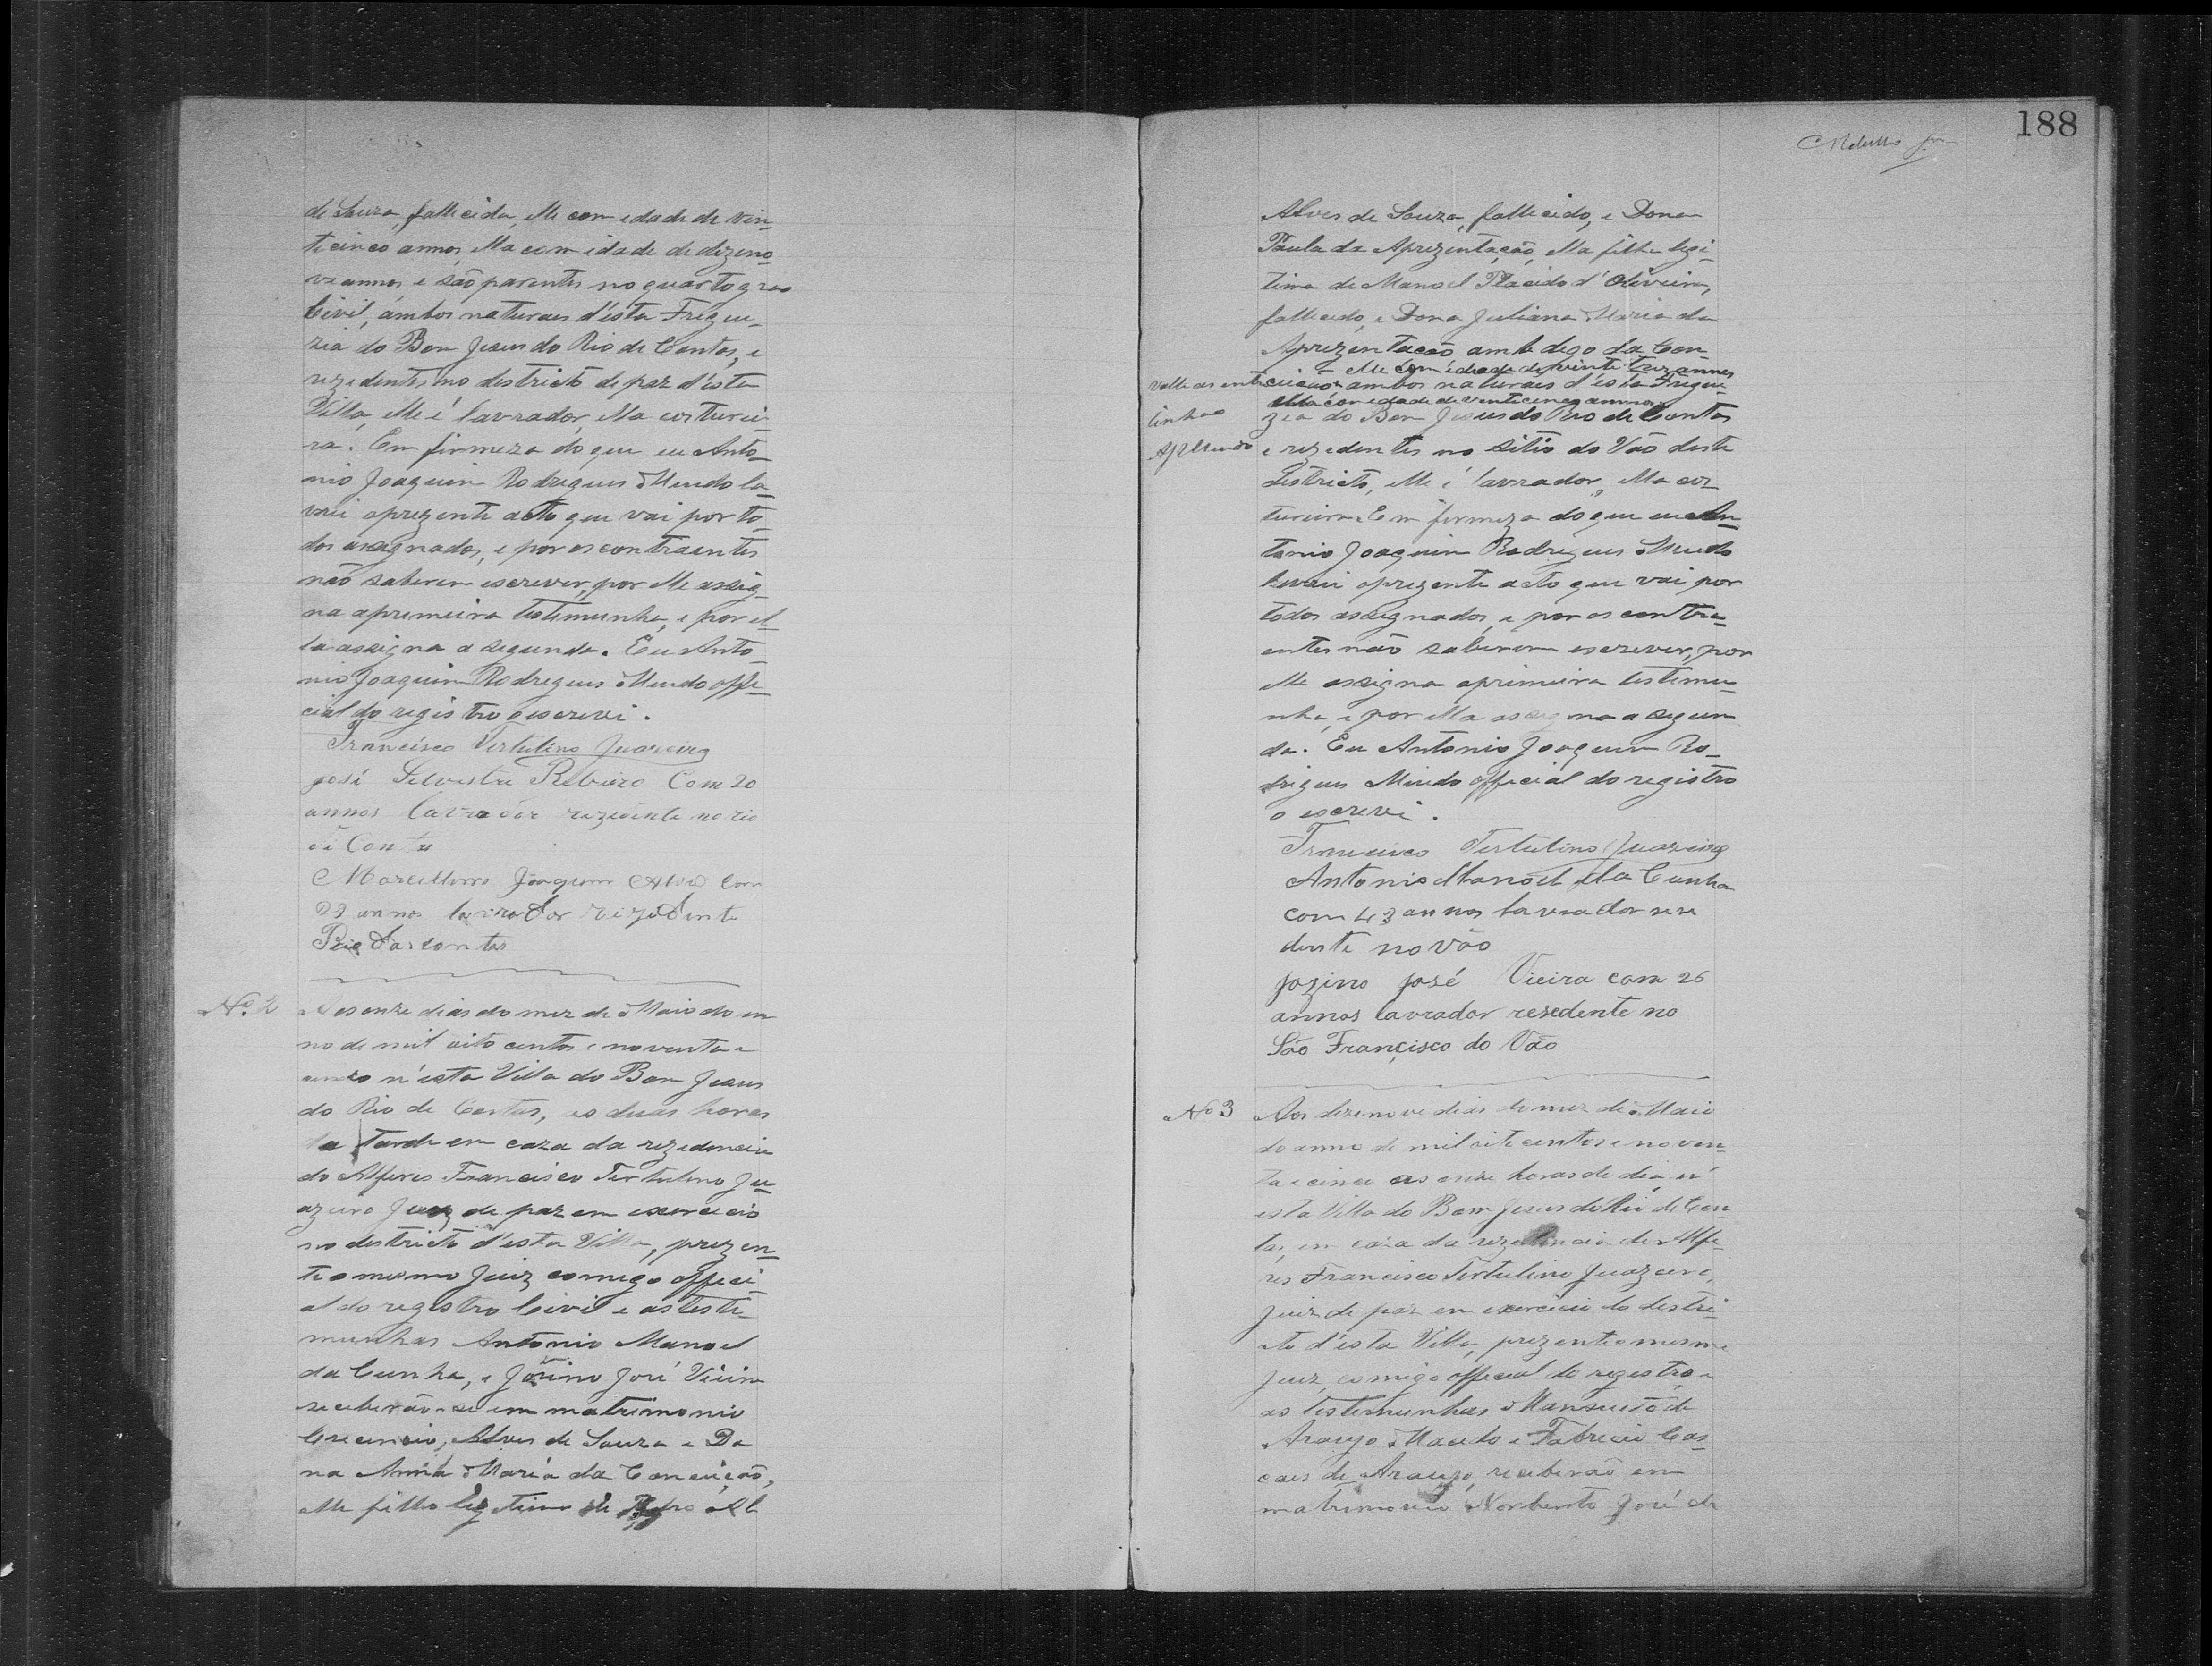 de Souza, fallecida, elle com edade de vin-
te cinco annos, ella com idade de dizeno-
ve annos e são parentes no quarto grao
Civil, ambos naturaes d'esta Fregue-
zia do Bom Jesus do Rio de Contas, e
rezedentes no destricto de paz d'esta
Villa, elle é lavrador, ella custurei-
ra. Em firmeza do que eu Anto-
nio Joaquim Rodrigues Macedo la-
vrei aprezente acto que vai por to-
dos assignados, e por os contraentes
não saberem escrever, por elle assig-
na apremeira testemunha, e por el-
la assigna a segunda. Eu Anto-
nio Joaquim Rodrigues Macedo offe-
cial do registro o escrevi.
Francisco Tertulino Juazeiro
José Silvestre Ribeiro Com 20
annos lavrador rezidente no rio
de Contas
Marcellino Joaquim Alves com
annos lavrador rezidente
Rio das contas
Nº 2
Aos onze dias do mez de Maio do an
no de mil oito centos e noventa e
cinco n'esta Villa do Bom Jesus
do Rio de Contas, as duas horas
da tarde em caza da rezedencia
do Alferes Francisco Tertulino Ju-
azeiro Juiz de paz em exercicio
no destricto d'esta Villa, prezen-
te o mesmo Juiz comego offeci-
al do registro Civil e as teste-
munhas Antonio Manoel
da Cunha, e Jozino José Vieira
receberão-se em matrimonio
Crecencio Alves de Souza e Do
na Anna Maria da Conceição,
elle filho legetimo de Pedro Al
188
Alves de Souza, fallecido, e Dona
Paula da Aprezentação, ella filha legi-
tima de Manoel Placido d'Oliveira,
fallecido, e Dona Juliana Maria da
Aprezentação ambe digo da Con-
elle com idade de vinte trez annos
valle as entre
ceição ambos naturaes d'esta Fregue-
ella com edade de vente cinco annos
linhas
zia do Bom Jesus do Rio de Contas
e rezedentes no Sitio do Vão deste
Destricto, elle é lavrador, ella cus
tureira. Em firmeza do que eu An-
tonio Joaquim Rodrigues Macedo
lavrei aprezente acto que vai por
todos assignados, e por os contra-
entes não saberem escrever, por
elle assigna aprimeira testemu-
nha, e por ella assigna a segun
da. Eu Antonio Joaquim Ro-
drigues Macedo official do registro
o escrevi.
Francisco Tertulino Juazeiro
Antonio Manoel da Cunha
com 43 annos lavrador rese
dente no Vão
Jozino José Vieira com 26
annos lavrador resedente no
São Francisco do Vão
Nº 3
Aos dezenove dias do mez de Maio
do anno de mil oito centos e noven-
ta e cinco as onze horas do dia n'
esta Villa do Bom Jesus do Rio de Con
tas, em caza da rezedencia do Alfe-
res Francisco Tertulino Juazeiro,
Juiz de paz em exercicio do destri-
cto d'esta Villa, prezente o mesmo
Juiz, comigo official do registro e
as testemunhas Mansueto de
Araujo Macedo e Fabricio Cas-
caes de Araujo, receberão em
matrimonio Norberto José de